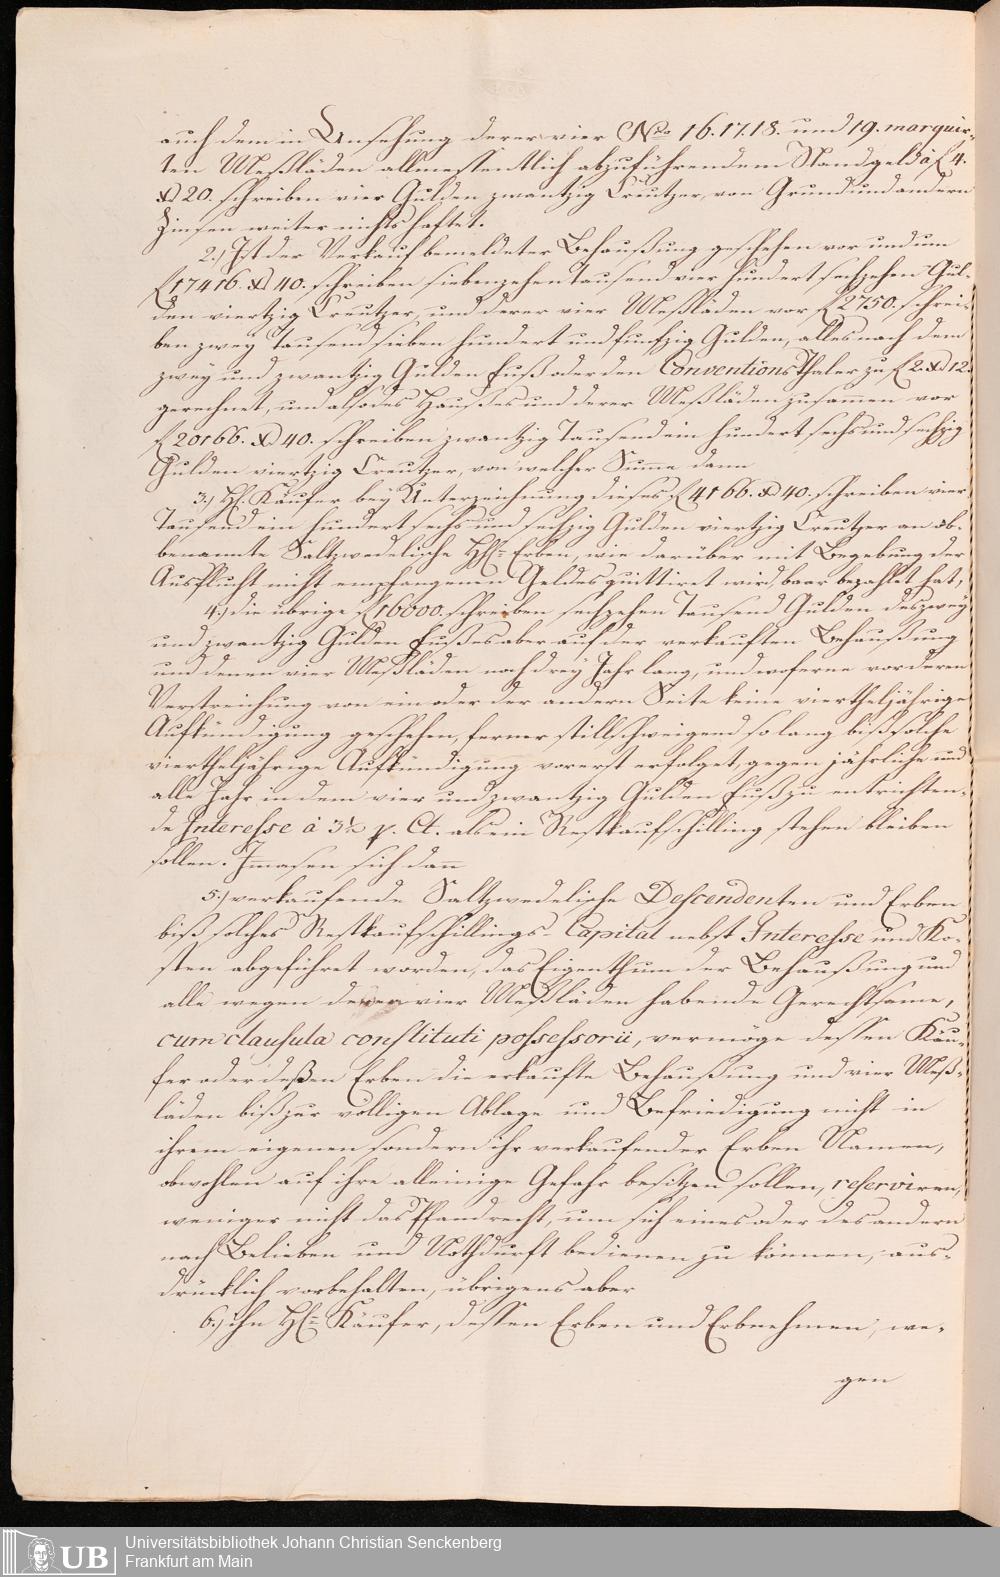 auch dem in Ansehung derer vier No. 16. 17. 18. und 19. marquir-
ten Meßläden allmessentlich abzuführendem Standgeld à f 4.
xd 20. schreiben vier Gulden zwantzig Creutzer, von Grund und andern
Zinsen weiter nichts haftet.
2.) Ist der Verkauf bemeldeter Behaußung geschehen vor und um
f 17416. xd 40. schreiben siebenzehen tausend vier hundert sechzehen Gul-
den viertzig Creutzer, und derer vier Meßläden vor f 2750. schrei-
ben zwey Tausend sieben hundert und funfzig Gulden, alles nach dem
zwey und zwantzig Gulden Fuß oder den Conventions Thaler zu f 2. xd 12.
gerechnet, und also des Haußes und derer Meßläden zusammen vor
f 20166. xd 40. schreiben zwantzig Tausend ein hundert sechs und sechzig
Gulden viertzig Creutzer, von welcher Summe dann
3.) H. Käufer bey Unterzeichnung dieses, f 4166. xd 40. schreiben vier
Tausend ein hundert sechs und sechzig Gulden viertzig Creutzer an ob-
benannte Saltzwedelische Erben, wie darüber mit Begebung der
Ausflucht nicht empfangenen Geldes quittiret wird, baar bezahlet hat,
4.) die übrige f 16000. schreiben sechzehen Tausend Gulden des zwey
und zwantzig Gulden Fußes aber auf der verkauften Behaußung
und denen vier Meßläden noch drey Jahr lang, und woferne vor deren
Verstreichung von ein oder der andern Seite keine viertheljährige
Aufkündigung geschehen, ferner stillschweigend so lang biß solche
viertheljährige Aufkündigung vorerst erfolget, gegen jährliche und
alle Jahr in dem vier und zwantzig Gulden Fuß zu entrichten-
de Interesse à 3½ p. Ct. als ein Restkaufschilling stehen bleiben
sollen. Immasen sich dann
5.) verkaufende Saltzwedelische Descendenten und Erben
biß solches Restkaufschillings-Capital nebst Interesse und Ko-
sten abgeführet worden, das Eigenthum der Behaußung und
alle wegen derer vier Meßläden habende Gerechtsame,
cum clausula constituti possessorii, vermöge dessen Käu-
fer oder deßen Erben die erkaufte Behaußung und vier Meß-
läden biß zur völligen Ablage und Befriedigung nicht in
ihrem eigenen sondern ihr verkaufender Erben Namen,
obwohlen auf ihre alleinige Gefahr besitzen sollen, reserviren,
weniger nicht das Pfandrecht, um sich eines oder des andern
nach Belieben und Nothdurft bedienen zu können, aus-
drücklich vorbehalten, übrigens aber
6.) ihn Käufer, dessen Erben und Erbnehmen, we-
gen
UB
Universitätsbibliothek Johann Christian Senckenberg
Frankfurt am Main